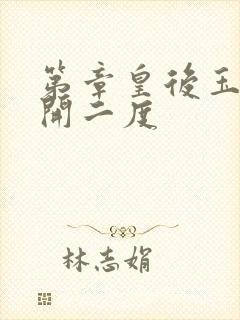 第章皇後玉
開二度
林志娟